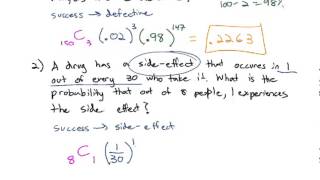 100-2 = 98%
success → defective
₁₅₀C₃ (.02)³ (.98)¹⁴⁷ = .2263
2) A drug has a side-effect that occures in 1
out of every 30 who take it. What is the
probability that out of 8 people, 1 experiences
the side effect?
success → side-effect
₈C₁ (1/30)¹